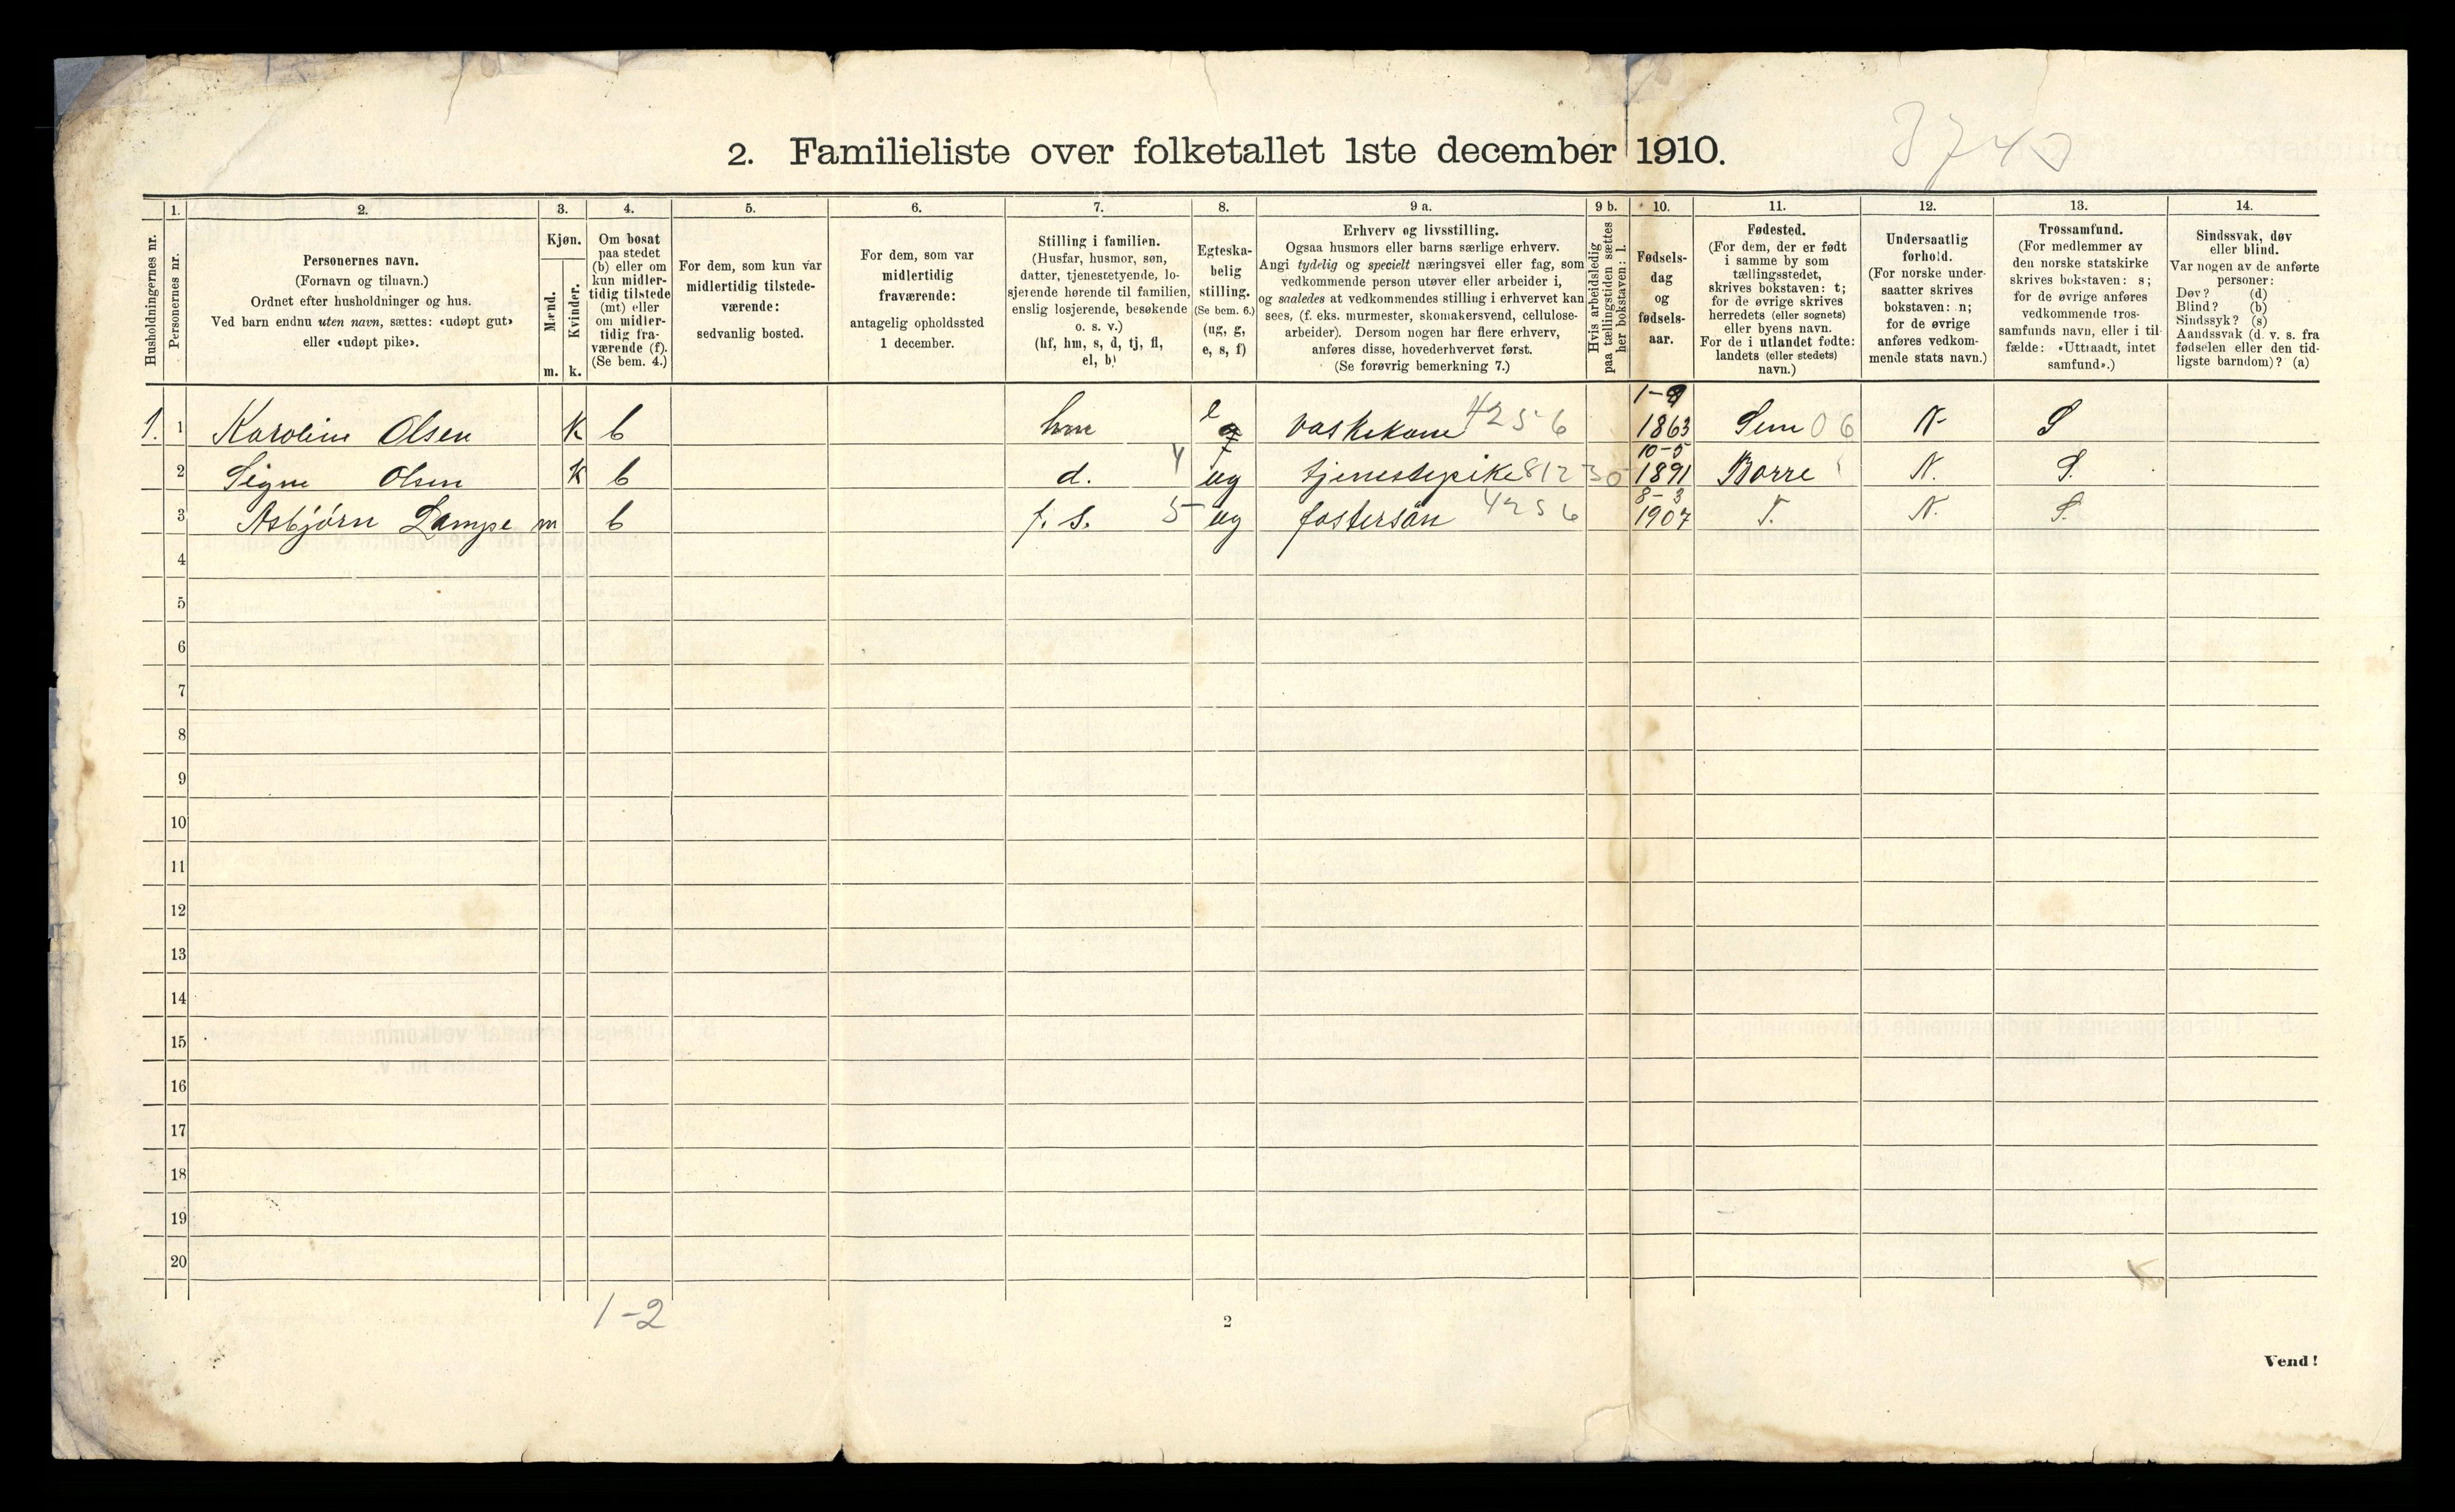 3740
2. Familieliste over folketallet 1ste december 1910.
1. 2. 3. 4. 5. 6. 7. 8. 9 a. 9 b. 10. 11. 12. 13. 14.
Husholdningernes nr.
Personernes nr.
Personernes navn.
(Fornavn og tilnavn.)
Ordnet efter husholdninger og hus.
Ved barn endnu uten navn, sættes: «udøpt gut»
eller «udøpt pike».
Kjøn.
Mænd.
Kvinder.
m. k.
Om bosat
paa stedet
(b) eller om
kun midler-
tidig tilstede
(mt) eller
om midler-
tidig fra-
værende (f).
(Se bem. 4.)
For dem, som kun var
midlertidig tilstede-
værende:
sedvanlig bosted.
For dem, som var
midlertidig
fraværende:
antagelig opholdssted
1 december.
Stilling i familien.
(Husfar, husmor, søn,
datter, tjenestetyende, lo-
sjerende hørende til familien,
enslig losjerende, besøkende
o. s. v.)
(hf, hm, s, d, tj, fl,
el, b)
Egteska-
belig
stilling.
(Se bem. 6.)
(ug, g,
e, s, f)
Erhverv og livsstilling.
Ogsaa husmors eller barns særlige erhverv.
Angi tydelig og specielt næringsvei eller fag, som
vedkommende person utøver eller arbeider i,
og saaledes at vedkommendes stilling i erhvervet kan
sees, (f. eks. murmester, skomakersvend, cellulose-
arbeider). Dersom nogen har flere erhverv,
anføres disse, hovederhvervet først.
(Se forøvrig bemerkning 7.)
Hvis arbeidsledig
paa tællingstiden sættes
her bokstaven: l.
Fødsels-
dag
og
fødsels-
aar.
Fødested.
(For dem, der er født
i samme by som
tællingsstedet,
skrives bokstaven: t;
for de øvrige skrives
herredets (eller sognets)
eller byens navn.
For de i utlandet fødte:
landets (eller stedets)
navn.)
Undersaatlig
forhold.
(For norske under-
saatter skrives
bokstaven: n;
for de øvrige
anføres vedkom-
mende stats navn.)
Trossamfund.
(For medlemmer av
den norske statskirke
skrives bokstaven: s;
for de øvrige anføres
vedkommende tros-
samfunds navn, eller i til-
fælde: «Uttraadt, intet
samfund».)
Sindssvak, døv
eller blind.
Var nogen av de anførte
personer:
Døv? (d)
Blind? (b)
Sindssyk? (s)
Aandssvak (d. v. s. fra
fødselen eller den tid-
ligste barndom)? (a)
1. 1 Karoline Olsen K b hm e vaskekone 4256 1863 Sem 06 N. S
2 Signe Olsen K b d. 4 ug tjenestepike 81230 10-5 1891 Borre N. S.
3 Asbjörn Lampe m b f. s. 5 ug fostersön 4256 8-3 1907 T. N. S.
4
5
6
7
8
9
10
11
12
13
14
15
16
17
18
19
20
1-2
2
Vend!